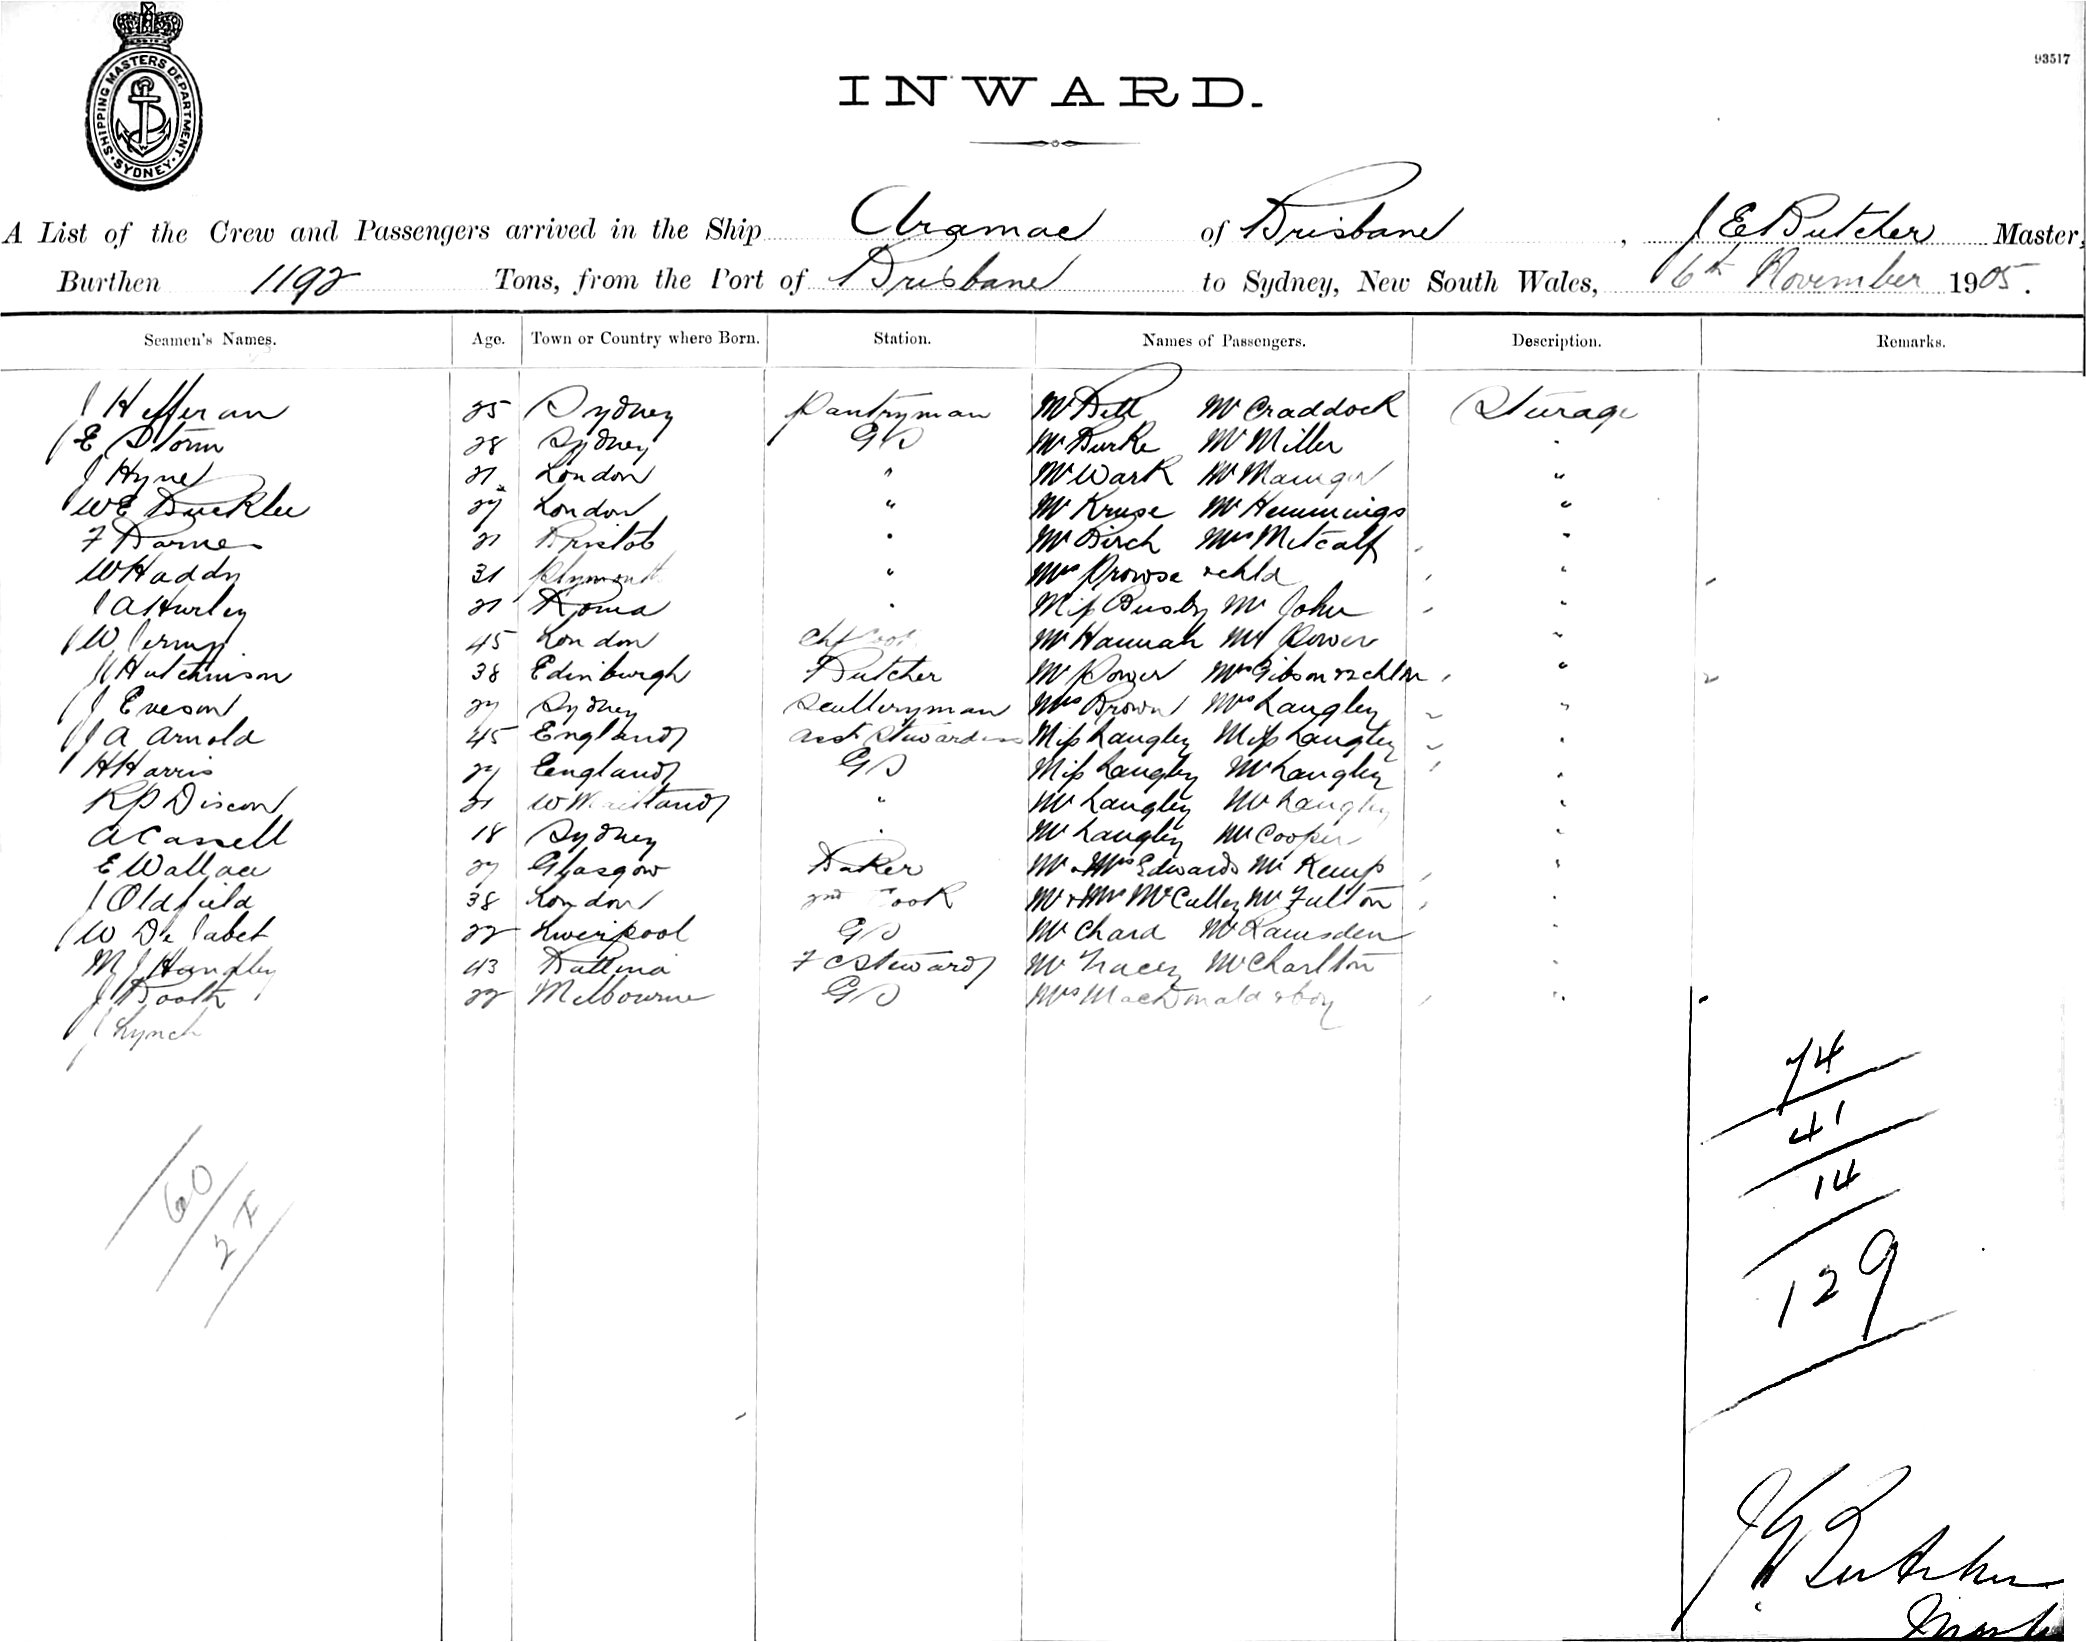 SHIPPING MASTERS DEPARTMENT · SYDNEY ·
93517
INWARD.
A List of the Crew and Passengers arrived in the Ship Aramac of Brisbane, J E Butcher Master,
Burthen 1192 Tons, from the Port of Brisbane to Sydney, New South Wales, 6th November 1905.
Seamen's Names. Age. Town or Country where Born. Station. Names of Passengers. Description. Remarks.
J Hefferan 25 Sydney Pantryman Mr Bell Mr Craddock Steerage
E Storm 28 Sydney GS Mr Burke Mr Miller "
J Hyne 21 London " Mr Wark Mr "
WE Bucklee 27 London " Mr Kruse Mr Hemmings "
F Barnes 21 Bristol " Mr Birch Mrs Metcalf "
W Haddy 31 Plymouth " Mrs Prowse & chld "
J A Hurley 21 Roma " Miss Busby Mr John "
W 45 London Chf Cook Mr Hannah Mr Power "
J Hutchinson 38 Edinburgh Butcher Mr Power Mrs Gibson & 2 chldn " 2
J Eveson 27 Sydney Sculleryman Mrs Brown Mrs Langley "
J A Arnold 45 England Asst Stewardess Miss Langley Miss Langley "
H Harris 27 England GS Miss Langley Mr Langley "
RP Discon 21 W Maitland " Mr Langley Mr Langley "
A Cassell 18 Sydney " Mr Langley Mr Cooper "
E Wallace 27 Glasgow Baker Mr & Mrs Edwards Mr Kemp "
J Oldfield 38 London 2nd Cook Mr & Mrs McCulley Mr Fulton "
W De Jabet 22 Liverpool GS Mr Chard Mr Ramsden "
M J Handley 43 Ballina F C Steward Mr Tracey Mr Charlton "
J Booth 22 Melbourne GS Mrs MacDonald & boy "
J Lynch
74
41
60
14
27
129
J E Butcher
Master